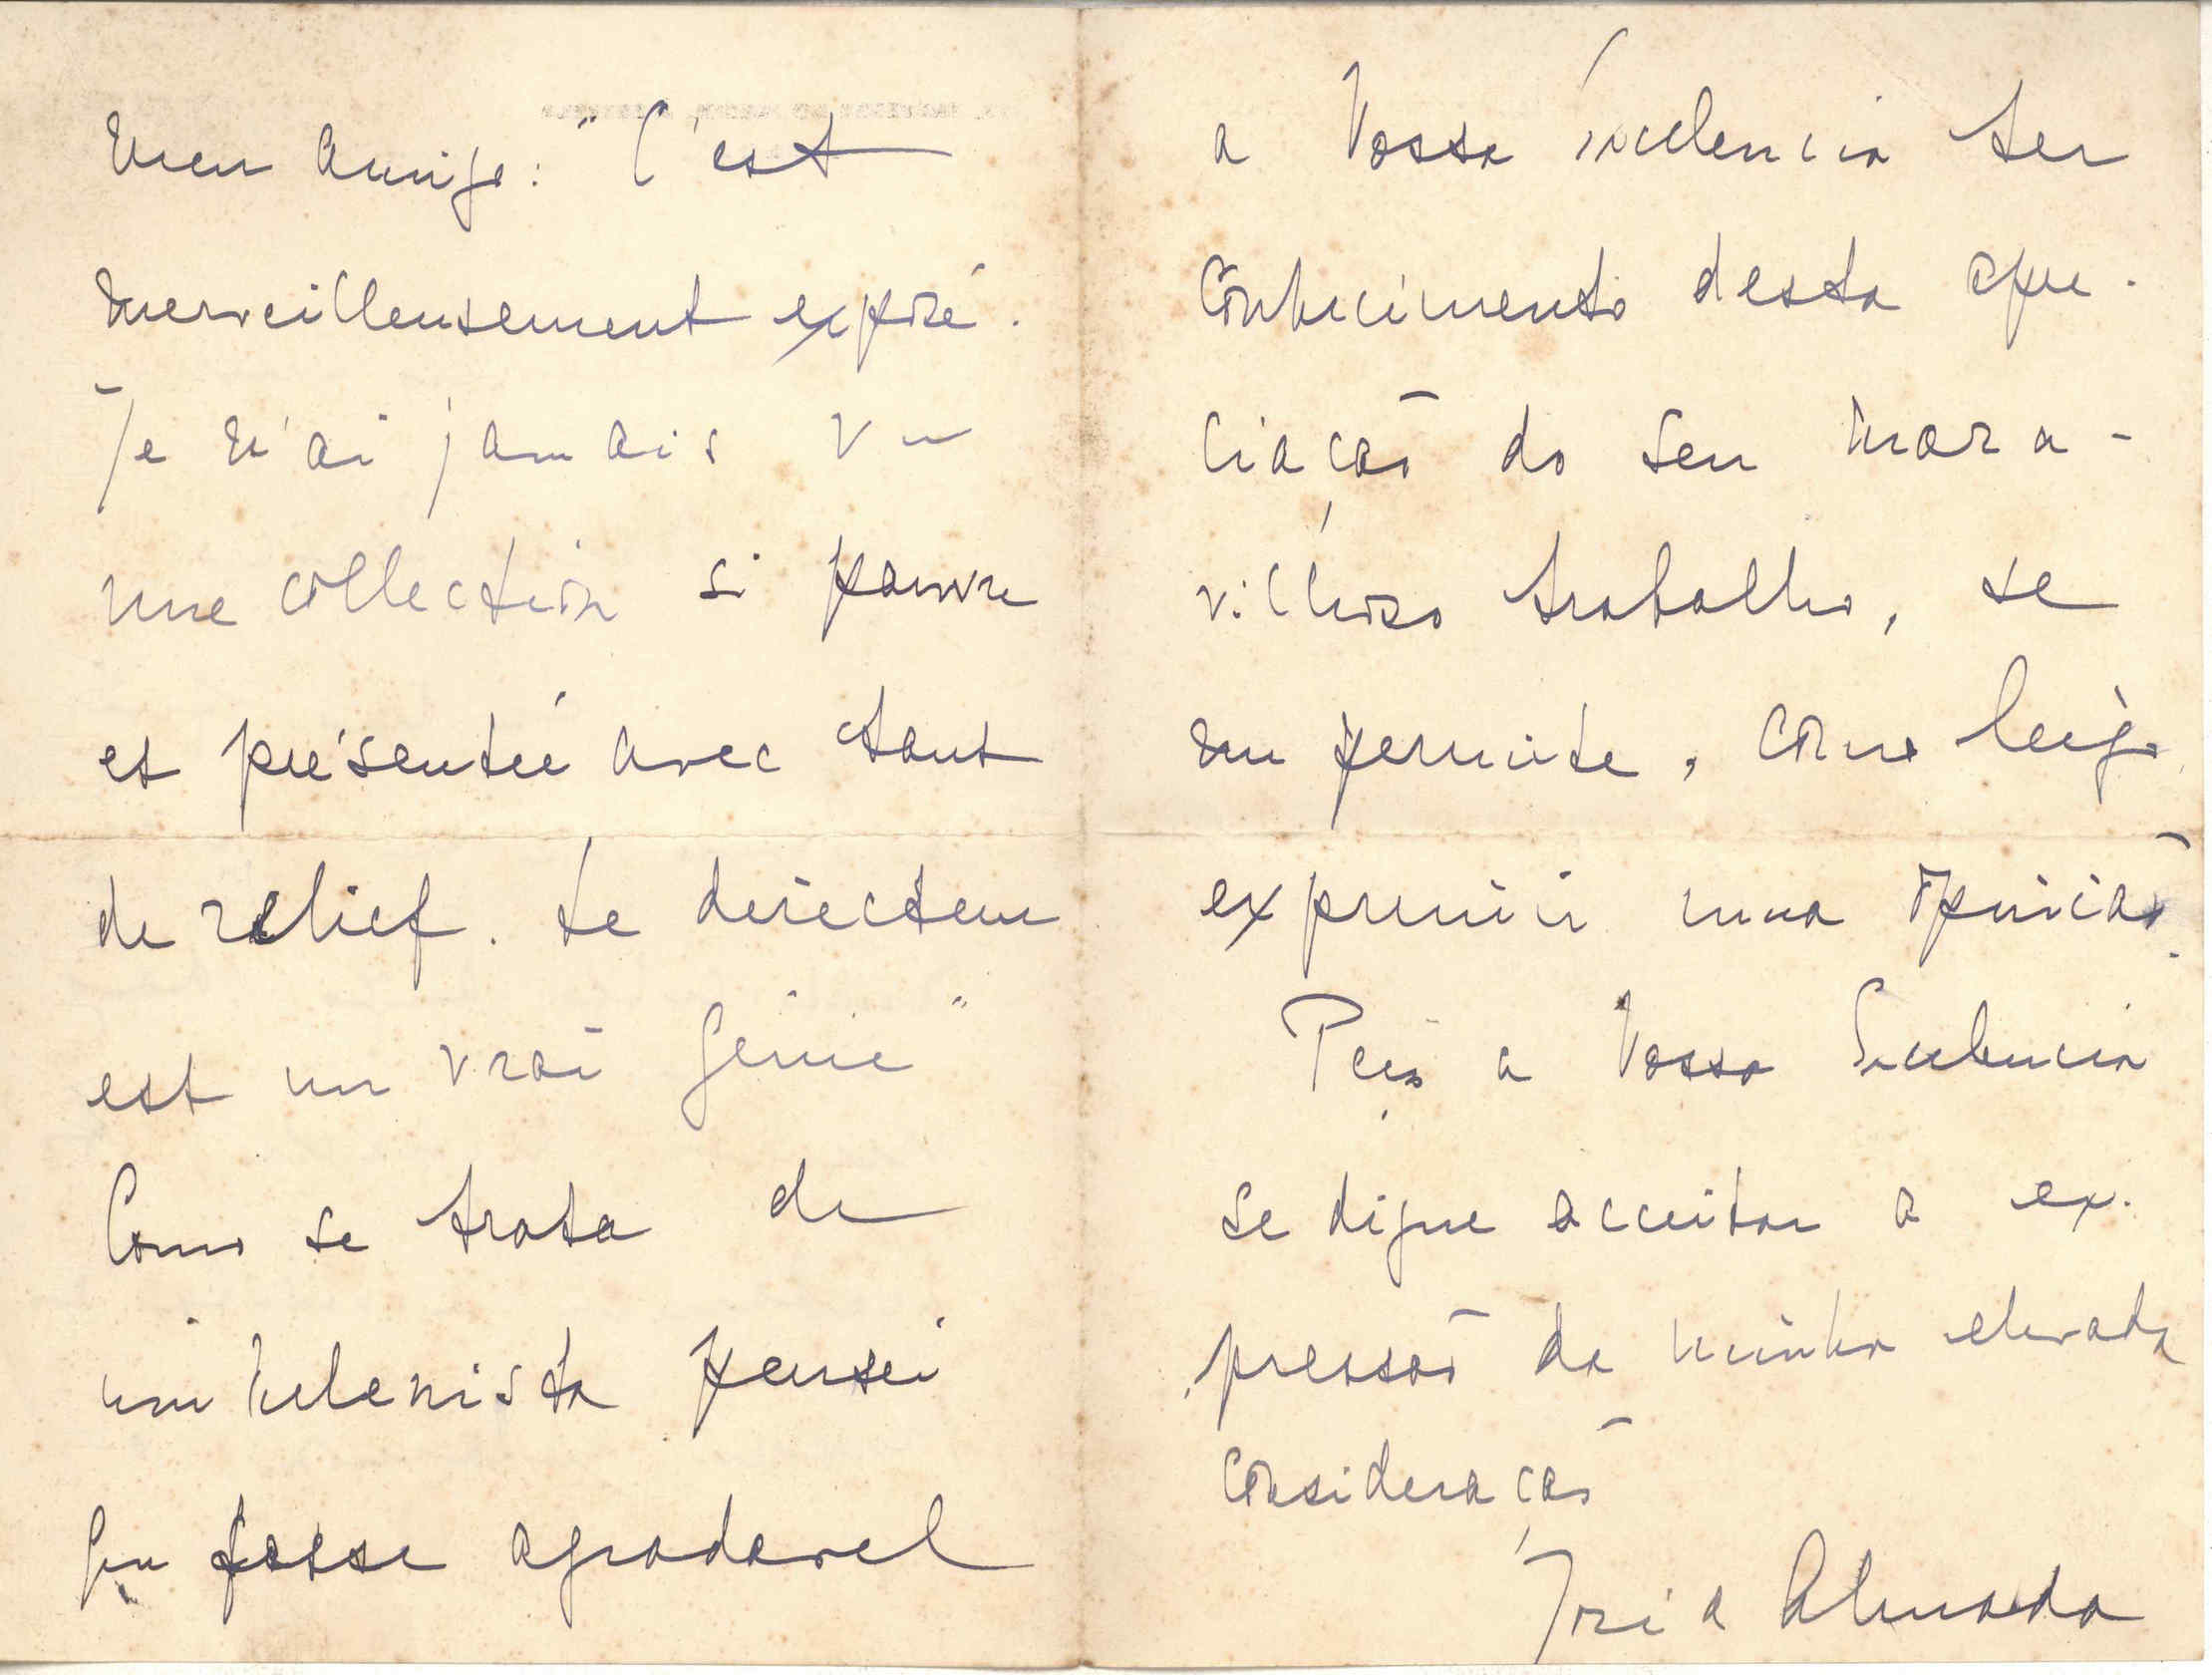 meu amigo: "C'est
merveilleusement exposé.
Je n'ai jamais vu
une collection si pauvre
et présentée avec tant
de relief. Le directeur
est un vrai génie"
Como se trata de
um helenista pensei
que fosse agradavel
a Vossa Excelencia ter
conhecimento desta apre-
ciação do seu mara-
vilhoso trabalho, se
me permite, como leigo
exprimir uma opinião.
Peço a Vossa Excelencia
se digne acceitar a ex-
pressão da minha elevada
consideração
José d'Almada